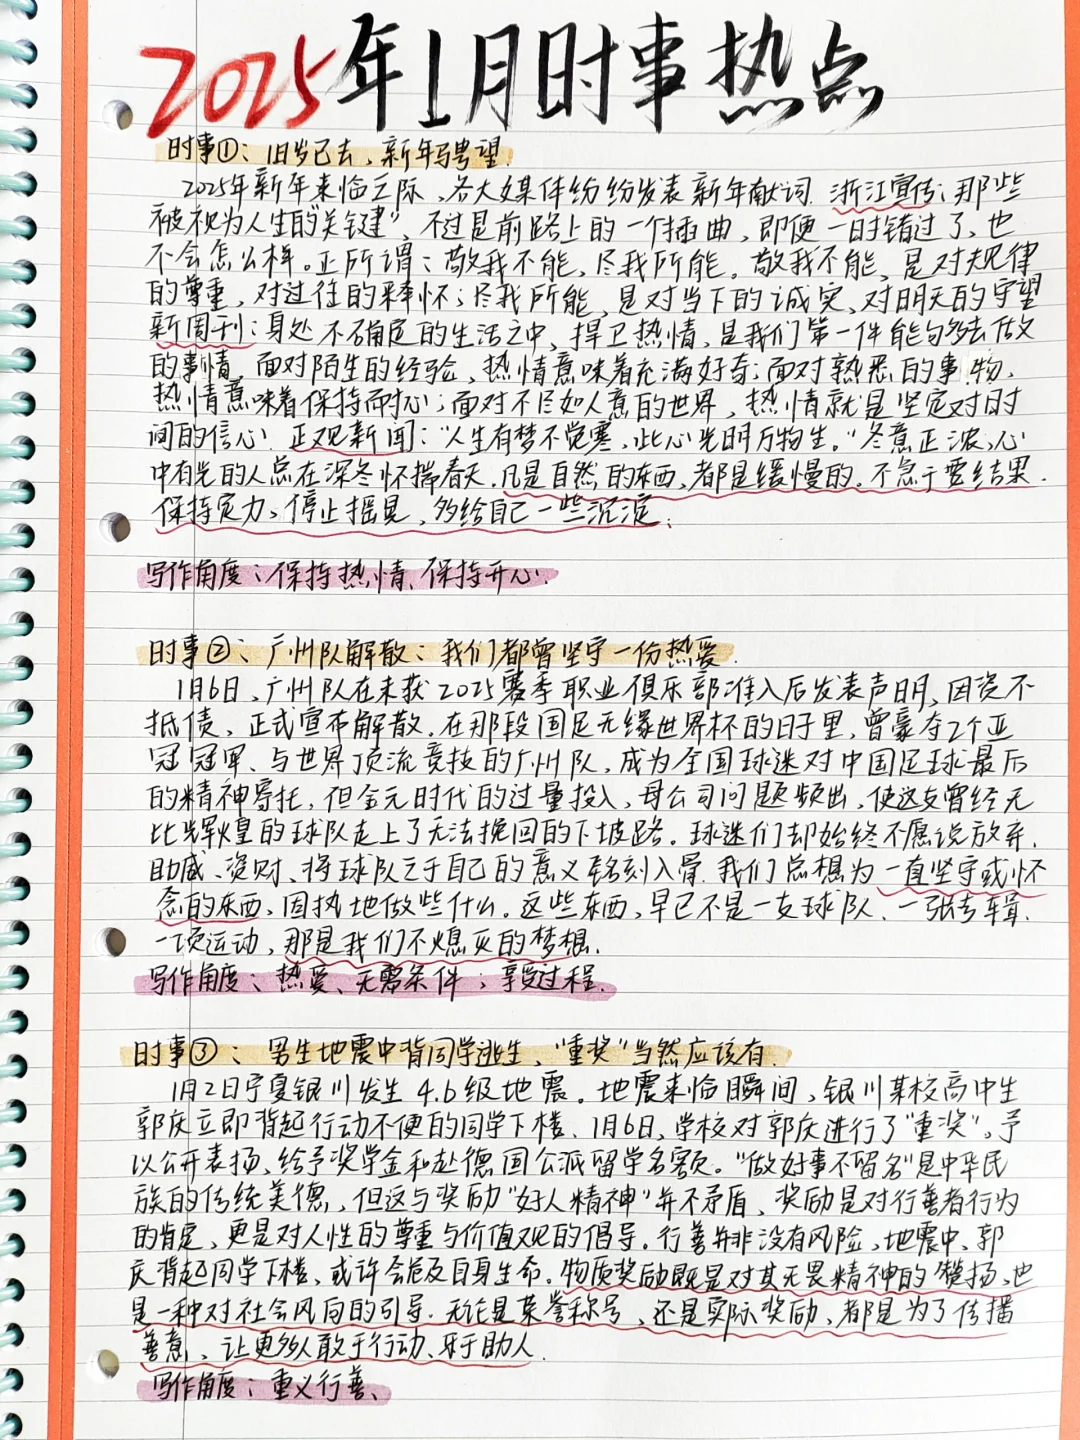 2025年1月时事热点
时事①：旧岁已去、新年骋望
2025年新年来临之际、各大媒体纷纷发表新年献词.浙江宣传:那些
被视为人生的"关键"、不过是前路上的一个插曲、即便一时错过了、也
不会怎么样。正所谓：敬我不能,尽我所能。敬我不能、是对规律
的尊重,对过往的释怀;尽我所能、是对当下的诚实、对明天的守望
新周刊:身处不确定的生活之中、捍卫热情、是我们第一件能够去做
的事情,面对陌生的经验、热情意味着充满好奇;面对熟悉的事物、
热情意味着保持耐心;面对不尽如人意的世界、热情就是坚定对时
间的信心.正观新闻:"人生有梦不觉寒、此心光明万物生。"冬意正浓、心
中有光的人点在深冬怀揣春天.凡是自然的东西、都是缓慢的.不急于要结果.
保持定力、停止摇晃、多给自己一些沉淀;
写作角度：保持热情、保持开心.
时事②：广州队解散：我们都曾坚守一份热爱.
1月6日、广州队在未获2025赛季职业俱乐部准入后发表声明、因资不
抵债、正式宣布解散.在那段国足无缘世界杯的日子里,曾豪夺2个亚
冠冠军、与世界顶流竞技的广州队,成为全国球迷对中国足球最后
的精神寄托,但金元时代的过量投入、母公司问题频出、使这支曾经无
比辉煌的球队走上了无法挽回的下坡路.球迷们却始终不愿说放弃.
助威、资财、将球队之于自己的意义铭刻入骨.我们总想为一直坚守或怀
念的东西、固执地做些什么.这些东西,早已不是一支球队、一张专辑.
一项运动,那是我们不熄灭的梦想.
写作角度：热爱、无需条件；享受过程.
时事③：男生地震中背同学逃生、"重奖"当然应该有.
1月2日宁夏银川发生4.6级地震。地震来临瞬间、银川某校高中生
郭庆立即背起行动不便的同学下楼、1月6日,学校对郭庆进行了"重奖"、予
以公开表扬、给予奖学金和赴德国公派留学名额。"做好事不留名"是中华民
族的传统美德、但这与奖励"好人精神"并不矛盾、奖励是对行善者行为
的肯定、更是对人性的尊重与价值观的倡导.行善并非没有风险、地震中、郭
庆背起同学下楼、或许会危及自身生命.物质奖励既是对其无畏精神的赞扬、也
是一种对社会风向的引导.无论是荣誉称号、还是实际奖励,都是为了传播
善意、让更多人敢于行动、乐于助人.
写作角度：重义行善、